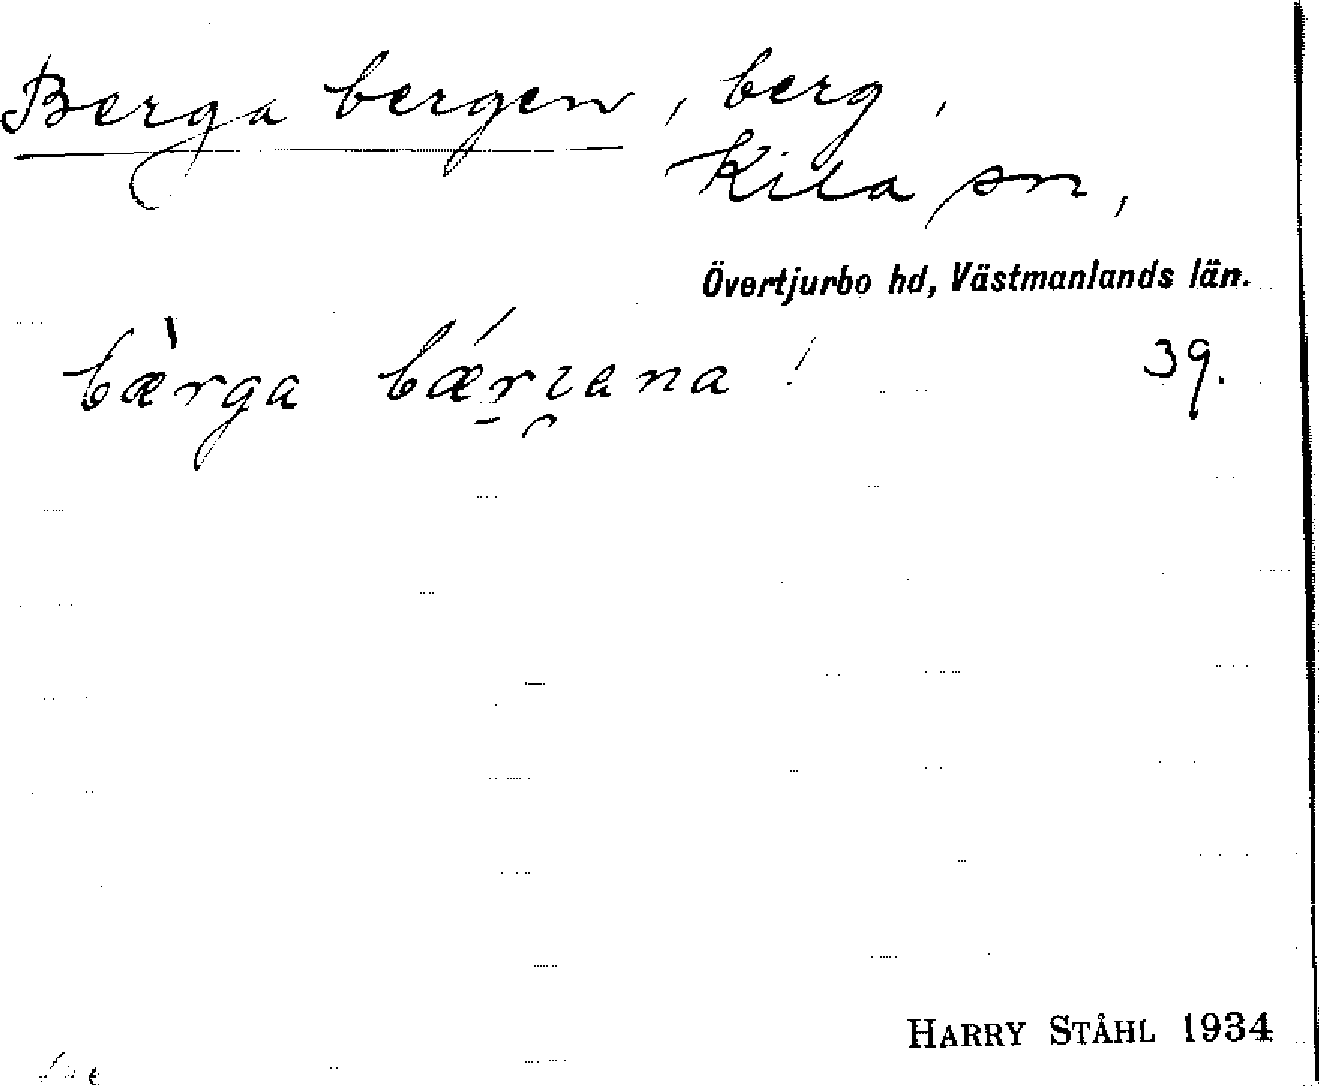 Berga bergen, berg,
Kila sn,
Övertjurbo hd, Västmanlands län.
bæ̀rga bǽrɩana ! 39.
HARRY STÅHL 1934